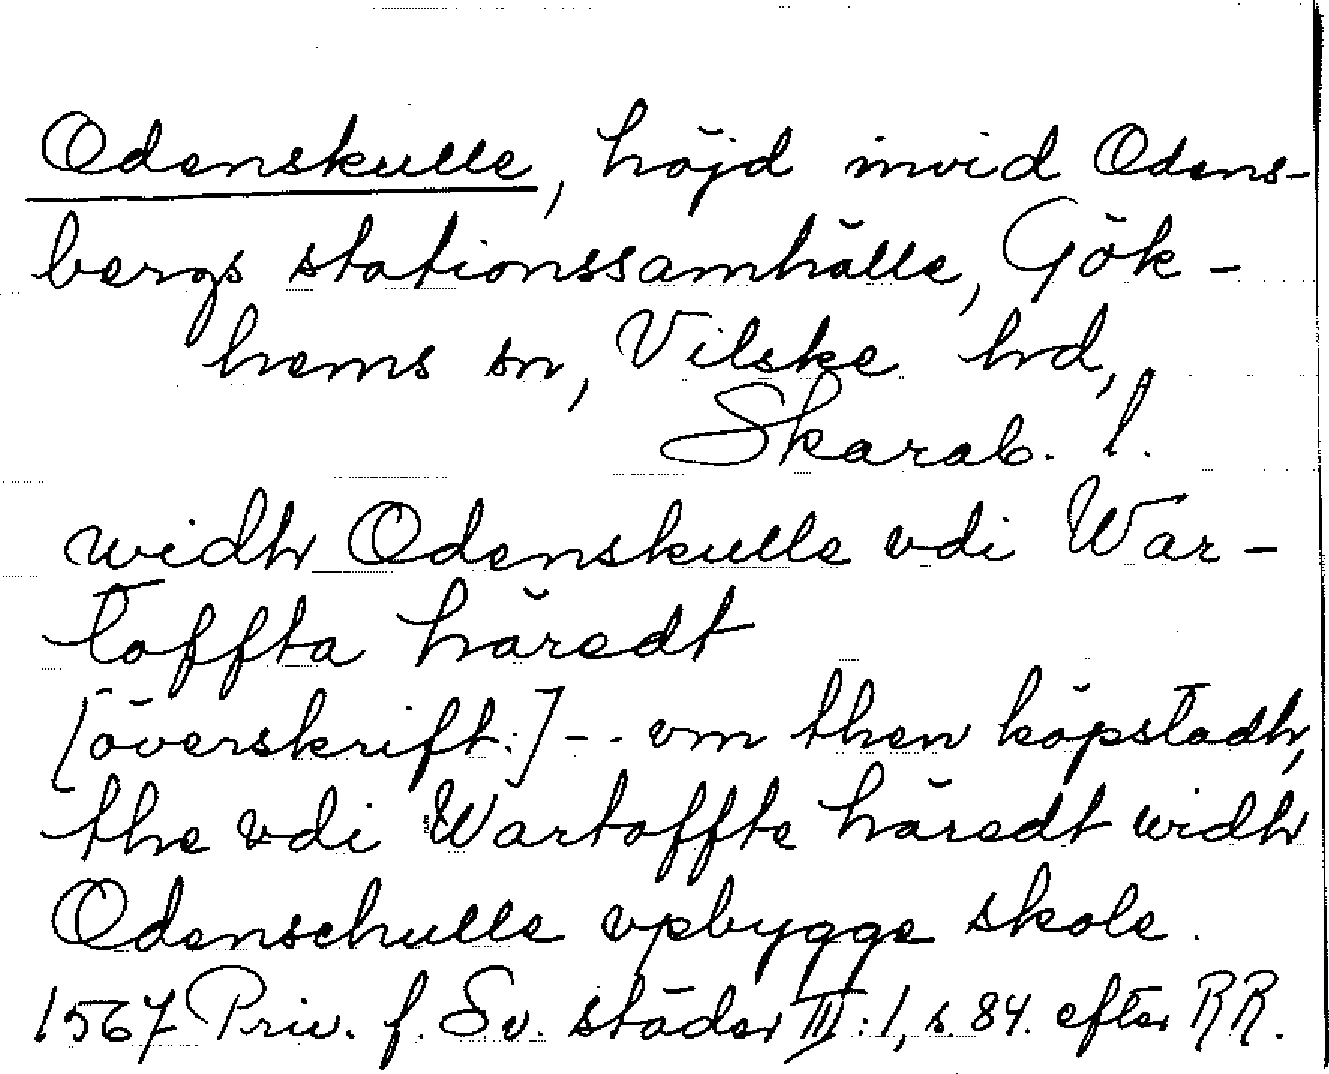 Odenskulle, höjd invid Odens-
bergs stationssamhälle, Gök-
hems sn, Vilske hd,
Skarab. l.
widh Odenskulle vdi War-
toffta häredt
[överskrift:] - - . vm then köpstadh,
the vdi Wartoffte häredt widh
Odenschulle vpbygge skole.
1567 Priv. f. Sv. städer III:1, s. 84. efter RR.